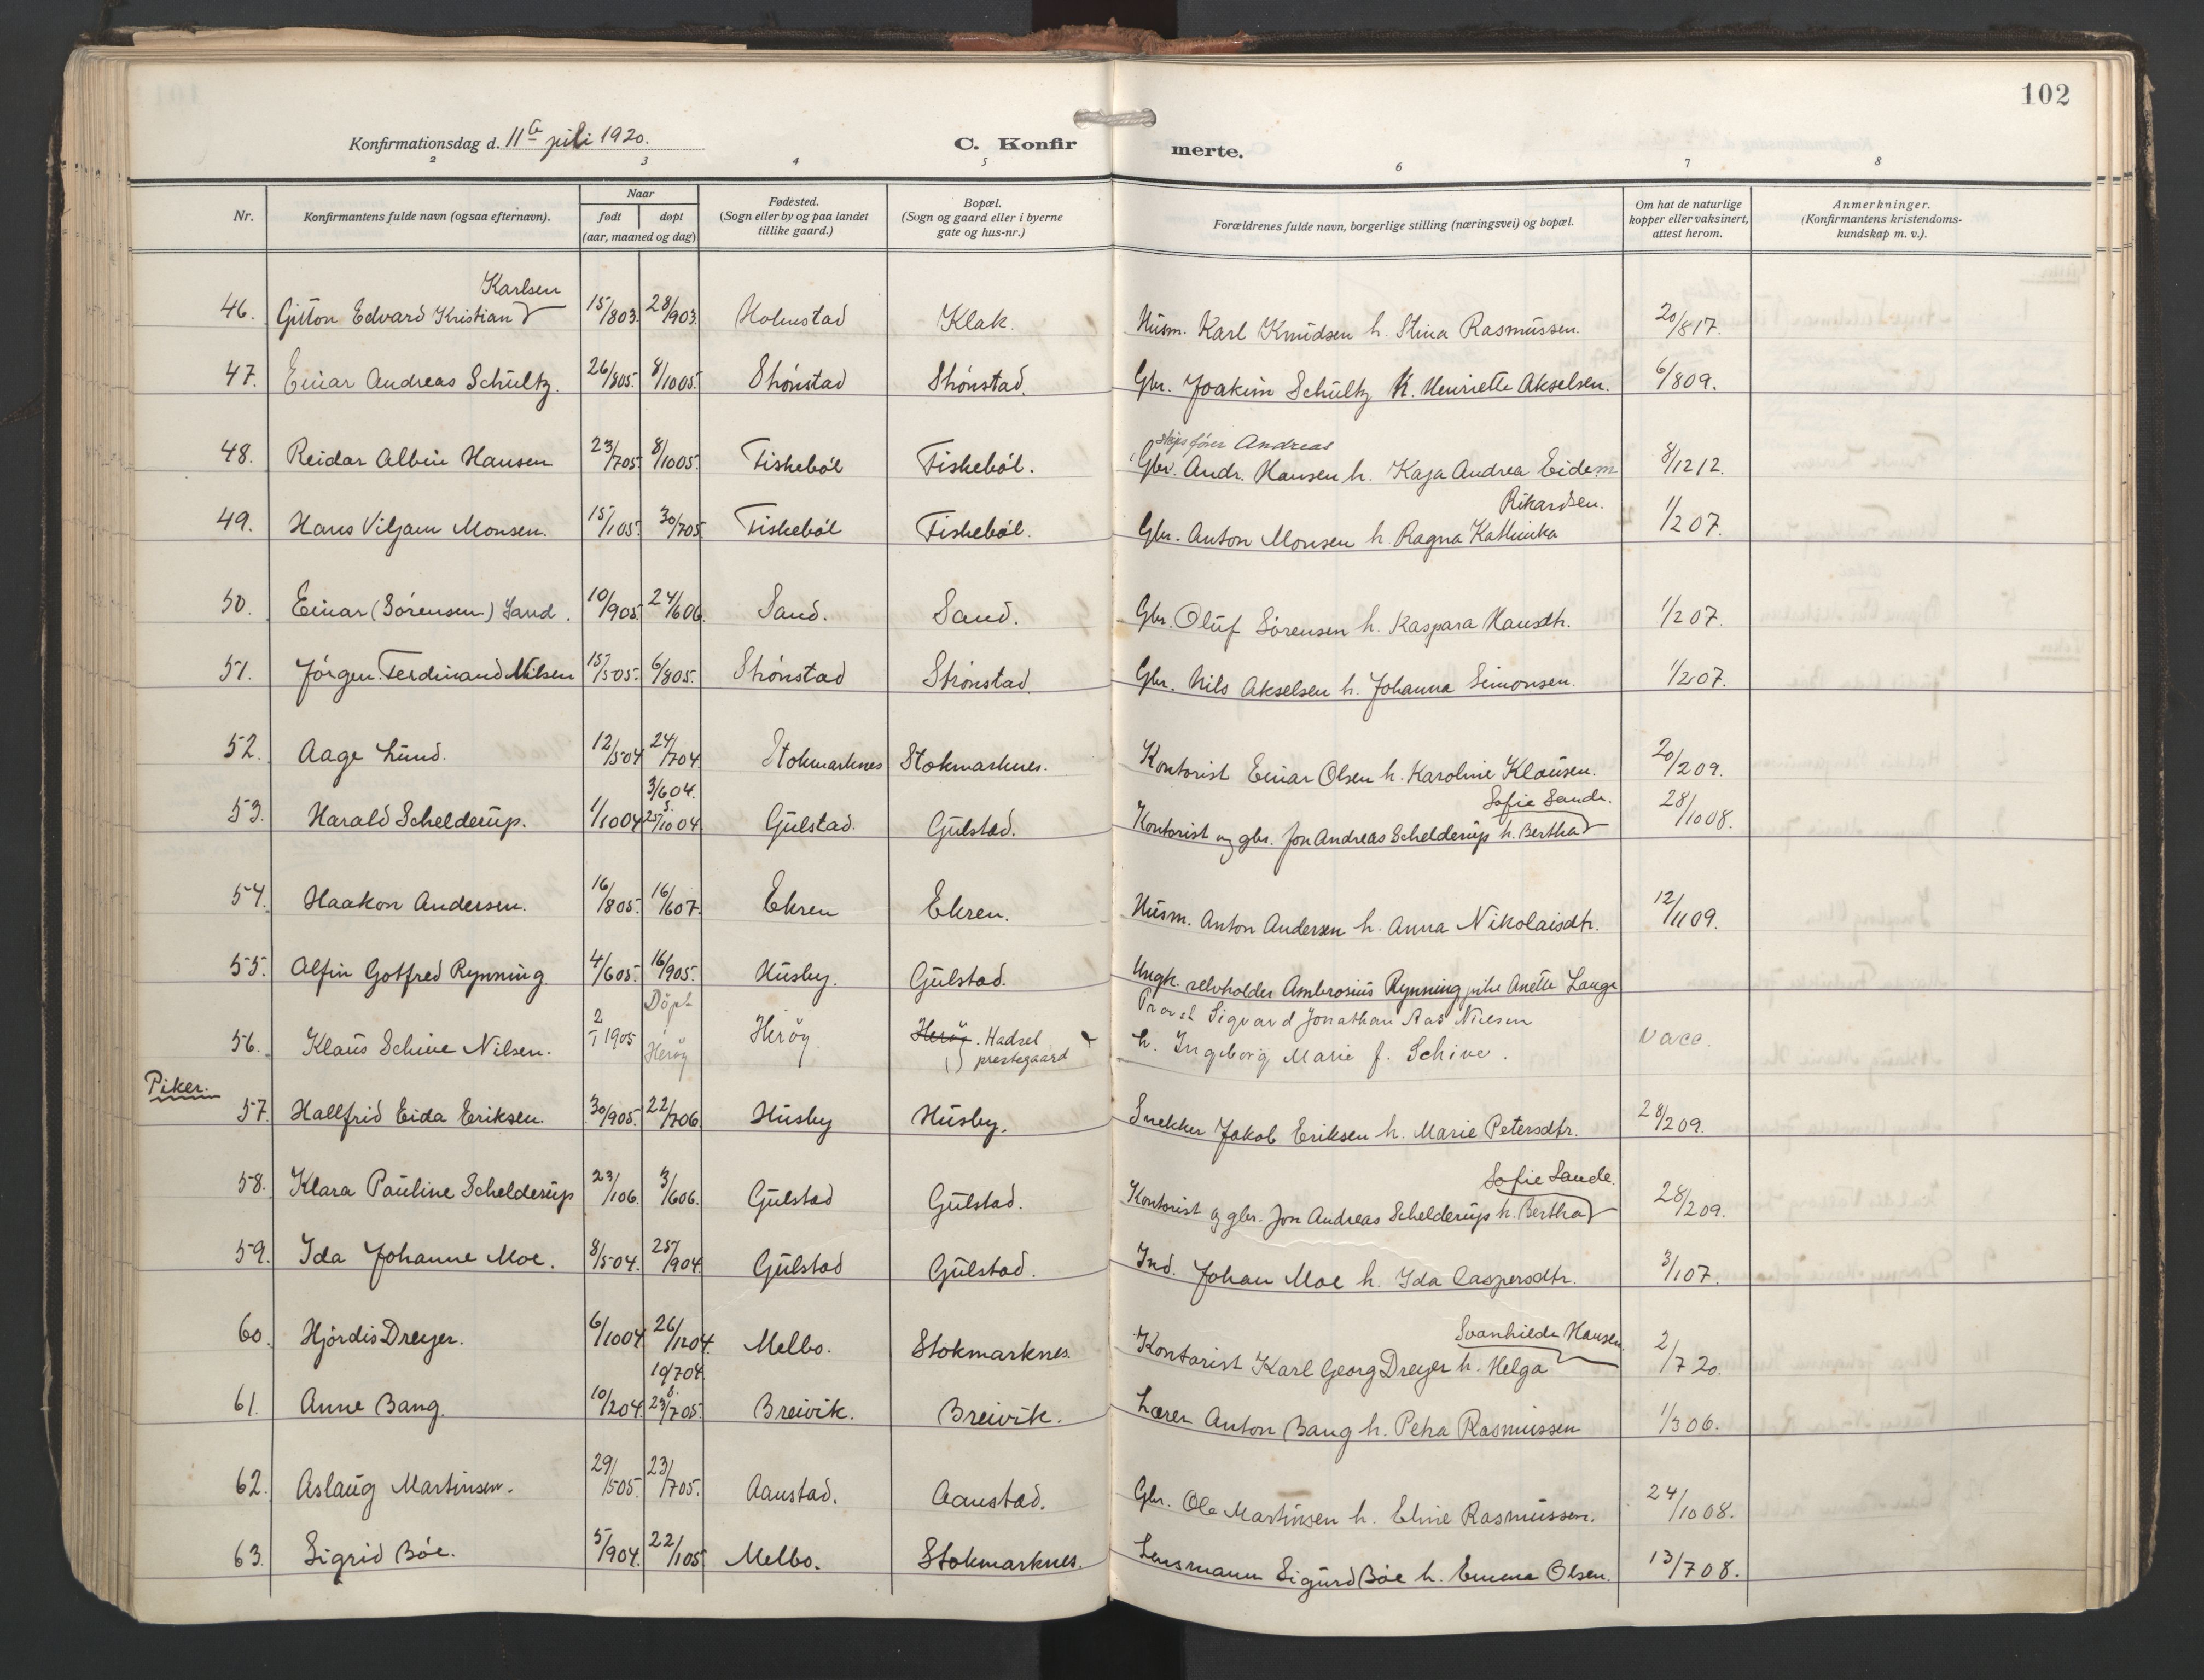 102
Konfirmationsdag d. 11te juli 1920.
C. Konfirmerte.
2 3 4 5 6 7 8
Nr.
Konfirmantens fulde navn (ogsaa efternavn).
Naar
født døpt
(aar, maaned og dag)
Fødested.
(Sogn eller by og paa landet
tillike gaard.)
Bopæl.
(Sogn og gaard eller i byerne
gate og hus-nr.)
Forældrenes fulde navn, borgerlige stilling (næringsvei) og bopæl.
Om hat de naturlige
kopper eller vaksinert,
attest herom.
Anmerkninger.
(Konfirmantens kristendoms-
kundskap m. v.).
Karlsen
46. Gitton Edvard Kristian 15/803. 28/903. Holmstad Klak. Husm. Karl Knudsen h. Stina Rasmussen. 20/817.
47. Einar Andreas Schultz. 26/805. 8/1005. Strönstad Strönstad. Gbr. Joakim Schultz K. Henriette Akselsen. 6/809.
Andreas
48. Reidar Albin Hansen 23/705. 8/1005. Fiskeböl Fiskeböl. Gbr. Andr. Hansen h. Kaja Andrea Eidem 8/1212.
Rikardsen.
49. Hans Viljam Monsen. 15/105. 30/705. Fiskeböl Fiskeböl. Gbr. Anton Monsen h. Ragna Kathinka 1/207.
50. Einar (Sörensen) Sand. 10/905. 24/606. Sand. Sand. Gbr. Oluf Sörensen h. Kaspara Hansdtr. 1/207.
51. Jörgen Ferdinand Nilsen 15/505. 6/805. Strönstad Strönstad. Gbr. Nils Akselsen h. Johanna Simonsen. 1/207.
52. Aage Lund. 12/504 24/704 Stokmarknes Stokmarknes. Kontorist Einar Olsen h. Karoline Klausen. 20/209.
3/604. Sofie Sande.
53. Harald Schelderup. 1/1004 s. 25/1004 Gulstad. Gulstad. Kontorist og gbr. Jon Andreas Schelderup h. Bertha 28/1008.
54. Haakon Andersen. 16/805. 16/607. Ekren Ekren. Husm. Anton Andersen h. Anna Nikolaisdtr. 12/1109.
55. Alfin Gotfred Rynning 4/605. 16/905. Husby. Gulstad. Ungk. selvholder Ambrosius Rynning, pike Anette Lange
Döpt Provst Sigvard Jonathan Aas Nilsen
56. Klaus Schive Nilsen. 2/1 1905 Heröy Heröy. Heröy. Hadsel
prestegaard h. Ingeborg Marie f. Schive. vacc.
Piker.
57. Hallfrid Eida Eriksen. 30/905. 22/706 Husby Husby. Snekker Jakob Eriksen h. Marie Petersdtr. 28/209.
Sofie Sande.
58. Klara Pauline Schelderup 23/106. 3/606. Gulstad Gulstad. Kontorist og gbr. Jon Andreas Schelderup h. Bertha 28/209.
59. Ida Johanne Moe. 8/504. 25/904. Gulstad Gulstad. Ind. Johan Moe h. Ida Caspersdtr. 3/107.
Svanhilde Hansen
60. Hjördis Dreyer. 6/1004. 26/1204. Melbo. Stokmarknes. Kontorist Karl Georg Dreyer h. Helga 2/720.
10/704
61. Anne Bang. 10/204. s. 23/705. Breivik. Breivik. Lærer Anton Bang h. Petra Rasmussen 1/306.
62. Aslaug Martinsen. 29/505. 23/705. Aanstad. Aanstad. Gbr. Ole Martinsen h. Eline Rasmussen. 24/1008.
63. Sigrid Böe. 5/904. 22/105 Melbo. Stokmarknes. Lensmann Sigurd Böe h. Emma Olsen. 13/708.